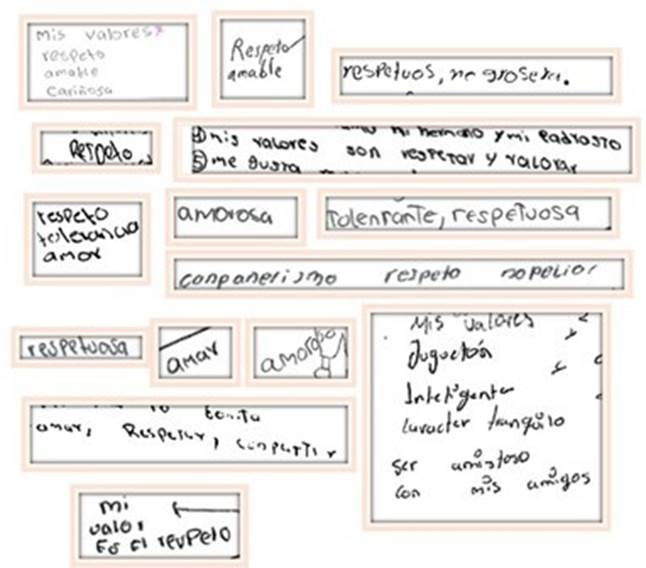 Mis valores
respeto
amable
Cariñosa
Respeto
amable
respetuos, no grosera.
Respeto
mi hermano y mi Padrasto
4) mis valores son respetar y valorar
5) me gusta
respeto
tolerancia
amor
amorosa
Tolenrante, respetuosa
conpanerismo respeto no pelior
respetuosa
amar
amoroso
Mis valores
Juguetón
Inteligente
Caracter tranquilo
ser amistoso
con mis amigos
bonita
amar, Respetar, compartir
mi
valor
Es el respeto